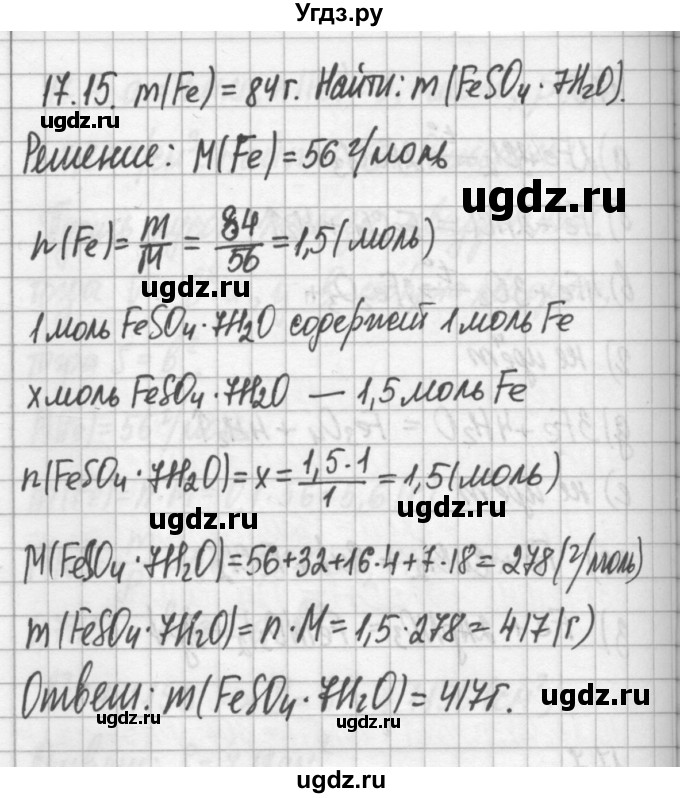 Угдз.ру
17.15. m(Fe) = 84 г. Найти: m(FeSO₄ · 7H₂O).
ugdz.ru
ugdz.ru
Решение: M(Fe) = 56 г/моль
ugdz.ru
n(Fe) = m/M = 84/56 = 1,5 (моль)
ugdz.ru
1 моль FeSO₄ · 7H₂O содержит 1 моль Fe
x моль FeSO₄ · 7H₂O — 1,5 моль Fe
n(FeSO₄ · 7H₂O) = x = 1,5·1/1 = 1,5 (моль)
ugdz.ru
ugdz.ru
M(FeSO₄ · 7H₂O) = 56+32+16·4+7·18 = 278 (г/моль)
m(FeSO₄ · 7H₂O) = n · M = 1,5 · 278 = 417 (г)
Ответ: m(FeSO₄ · 7H₂O) = 417 г.
ugdz.ru
ugdz.ru
ugdz.ru
ugdz.ru